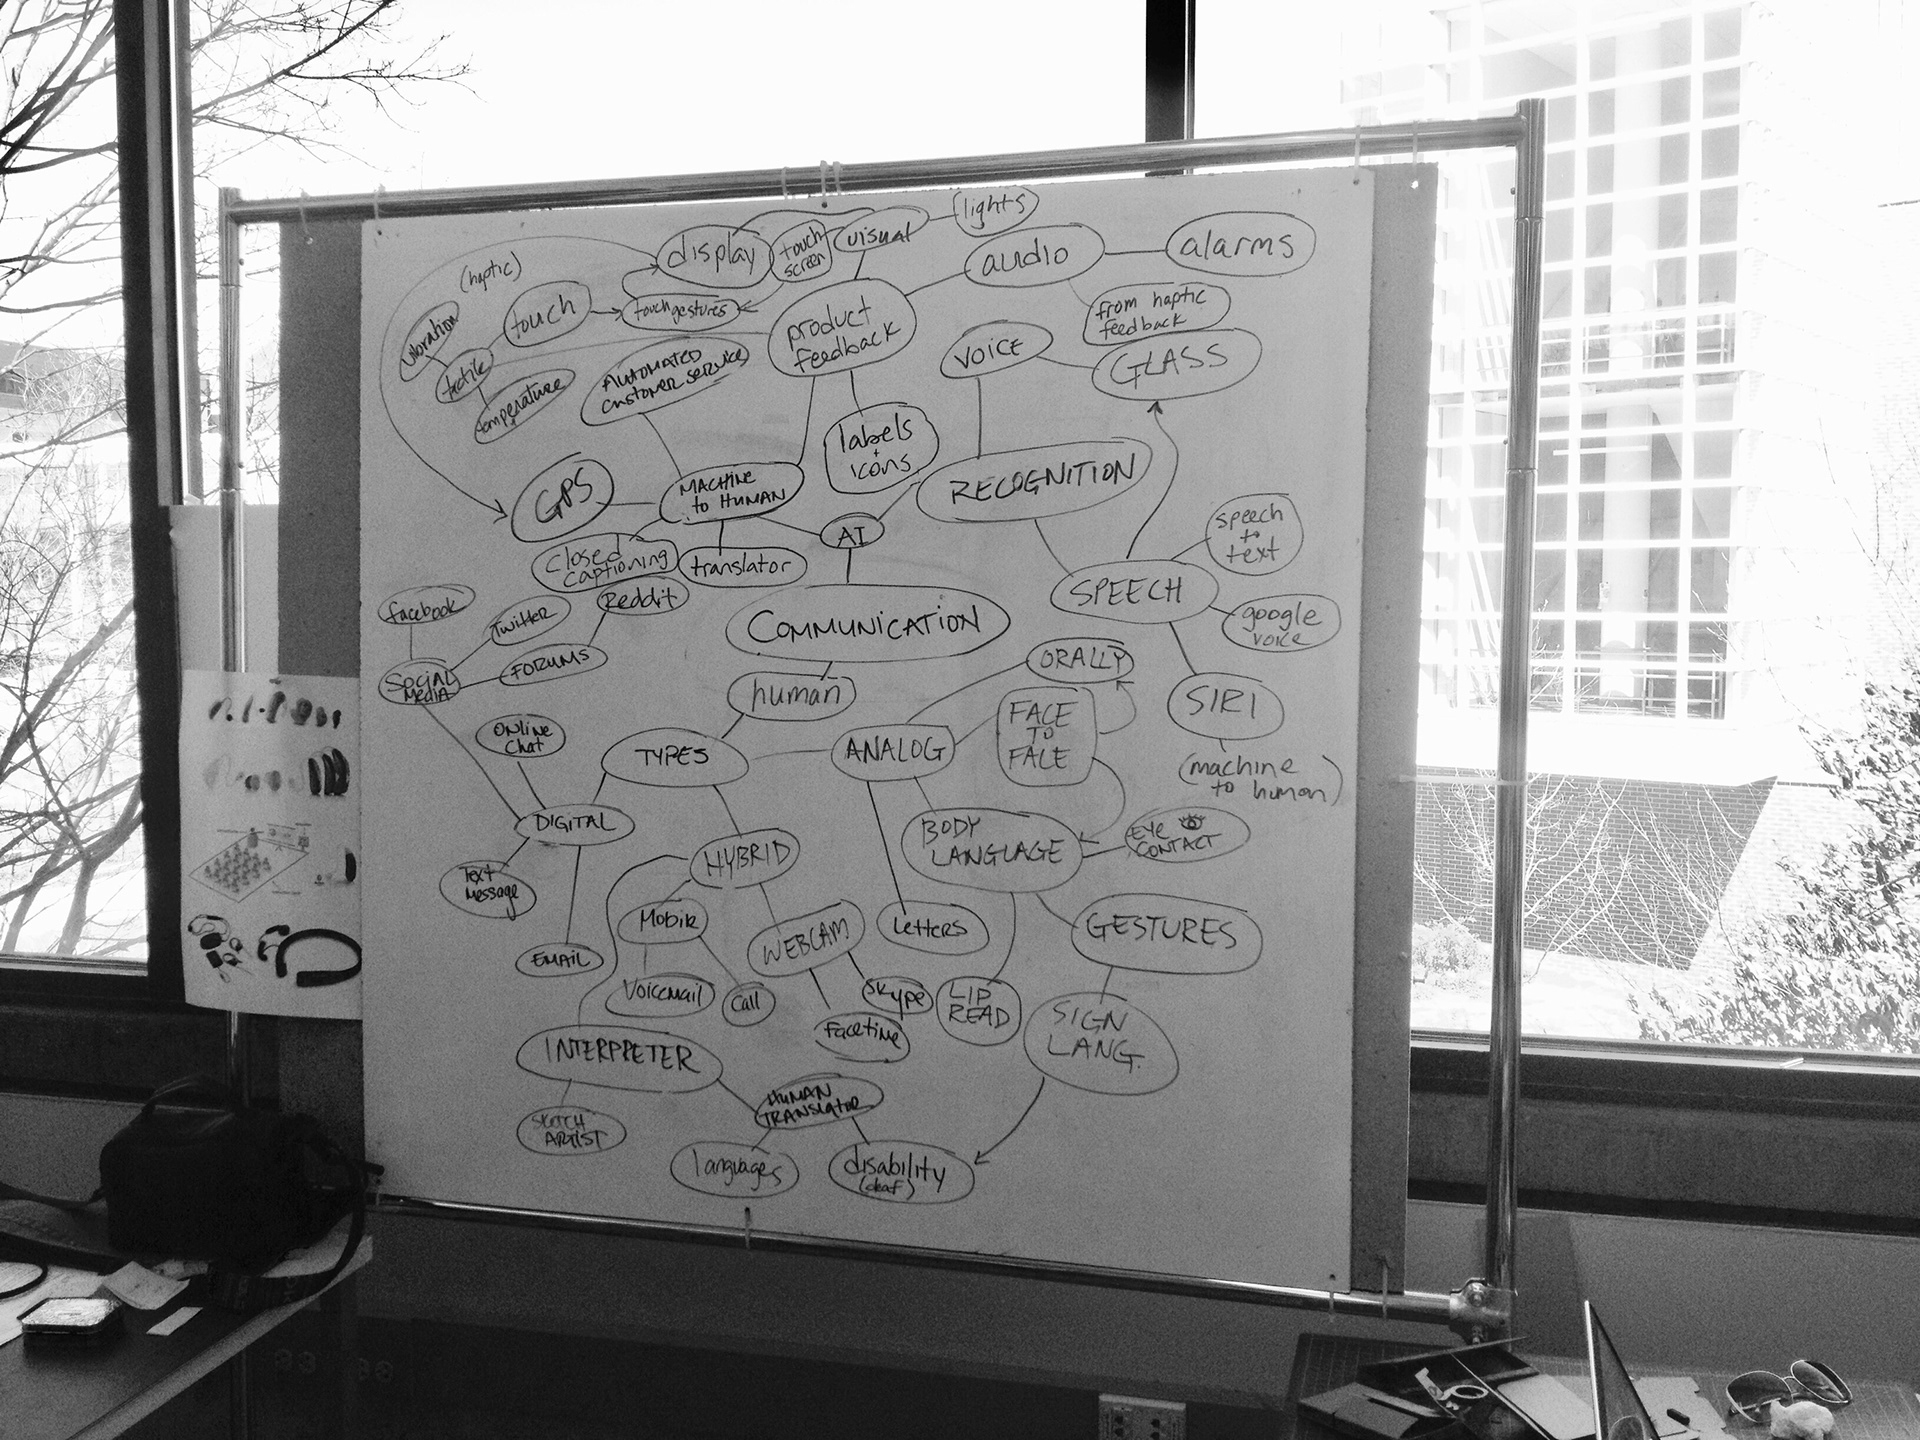 lights
display
touch
screen
visual
audio
alarms
(haptic)
vibration
touch
touch gestures
product
feedback
from haptic
feedback
VOICE
GLASS
tactile
temperature
AUTOMATED
CUSTOMER SERVICE
labels
+
icons
GPS
MACHINE
to HUMAN
RECOGNITION
AI
closed
captioning
translator
speech
to
text
SPEECH
google
voice
facebook
Twitter
Reddit
COMMUNICATION
FORUMS
SOCIAL
MEDIA
human
ORALLY
FACE
TO
FACE
SIRI
(machine
to human)
ONLINE
Chat
TYPES
ANALOG
DIGITAL
HYBRID
BODY
LANGUAGE
EYE
CONTACT
Text
Message
Mobile
WEBCAM
Letters
GESTURES
EMAIL
Voicemail
Call
Skype
Facetime
LIP
READ
SIGN
LANG.
INTERPRETER
SKETCH
ARTIST
HUMAN
TRANSLATOR
languages
disability
(deaf)